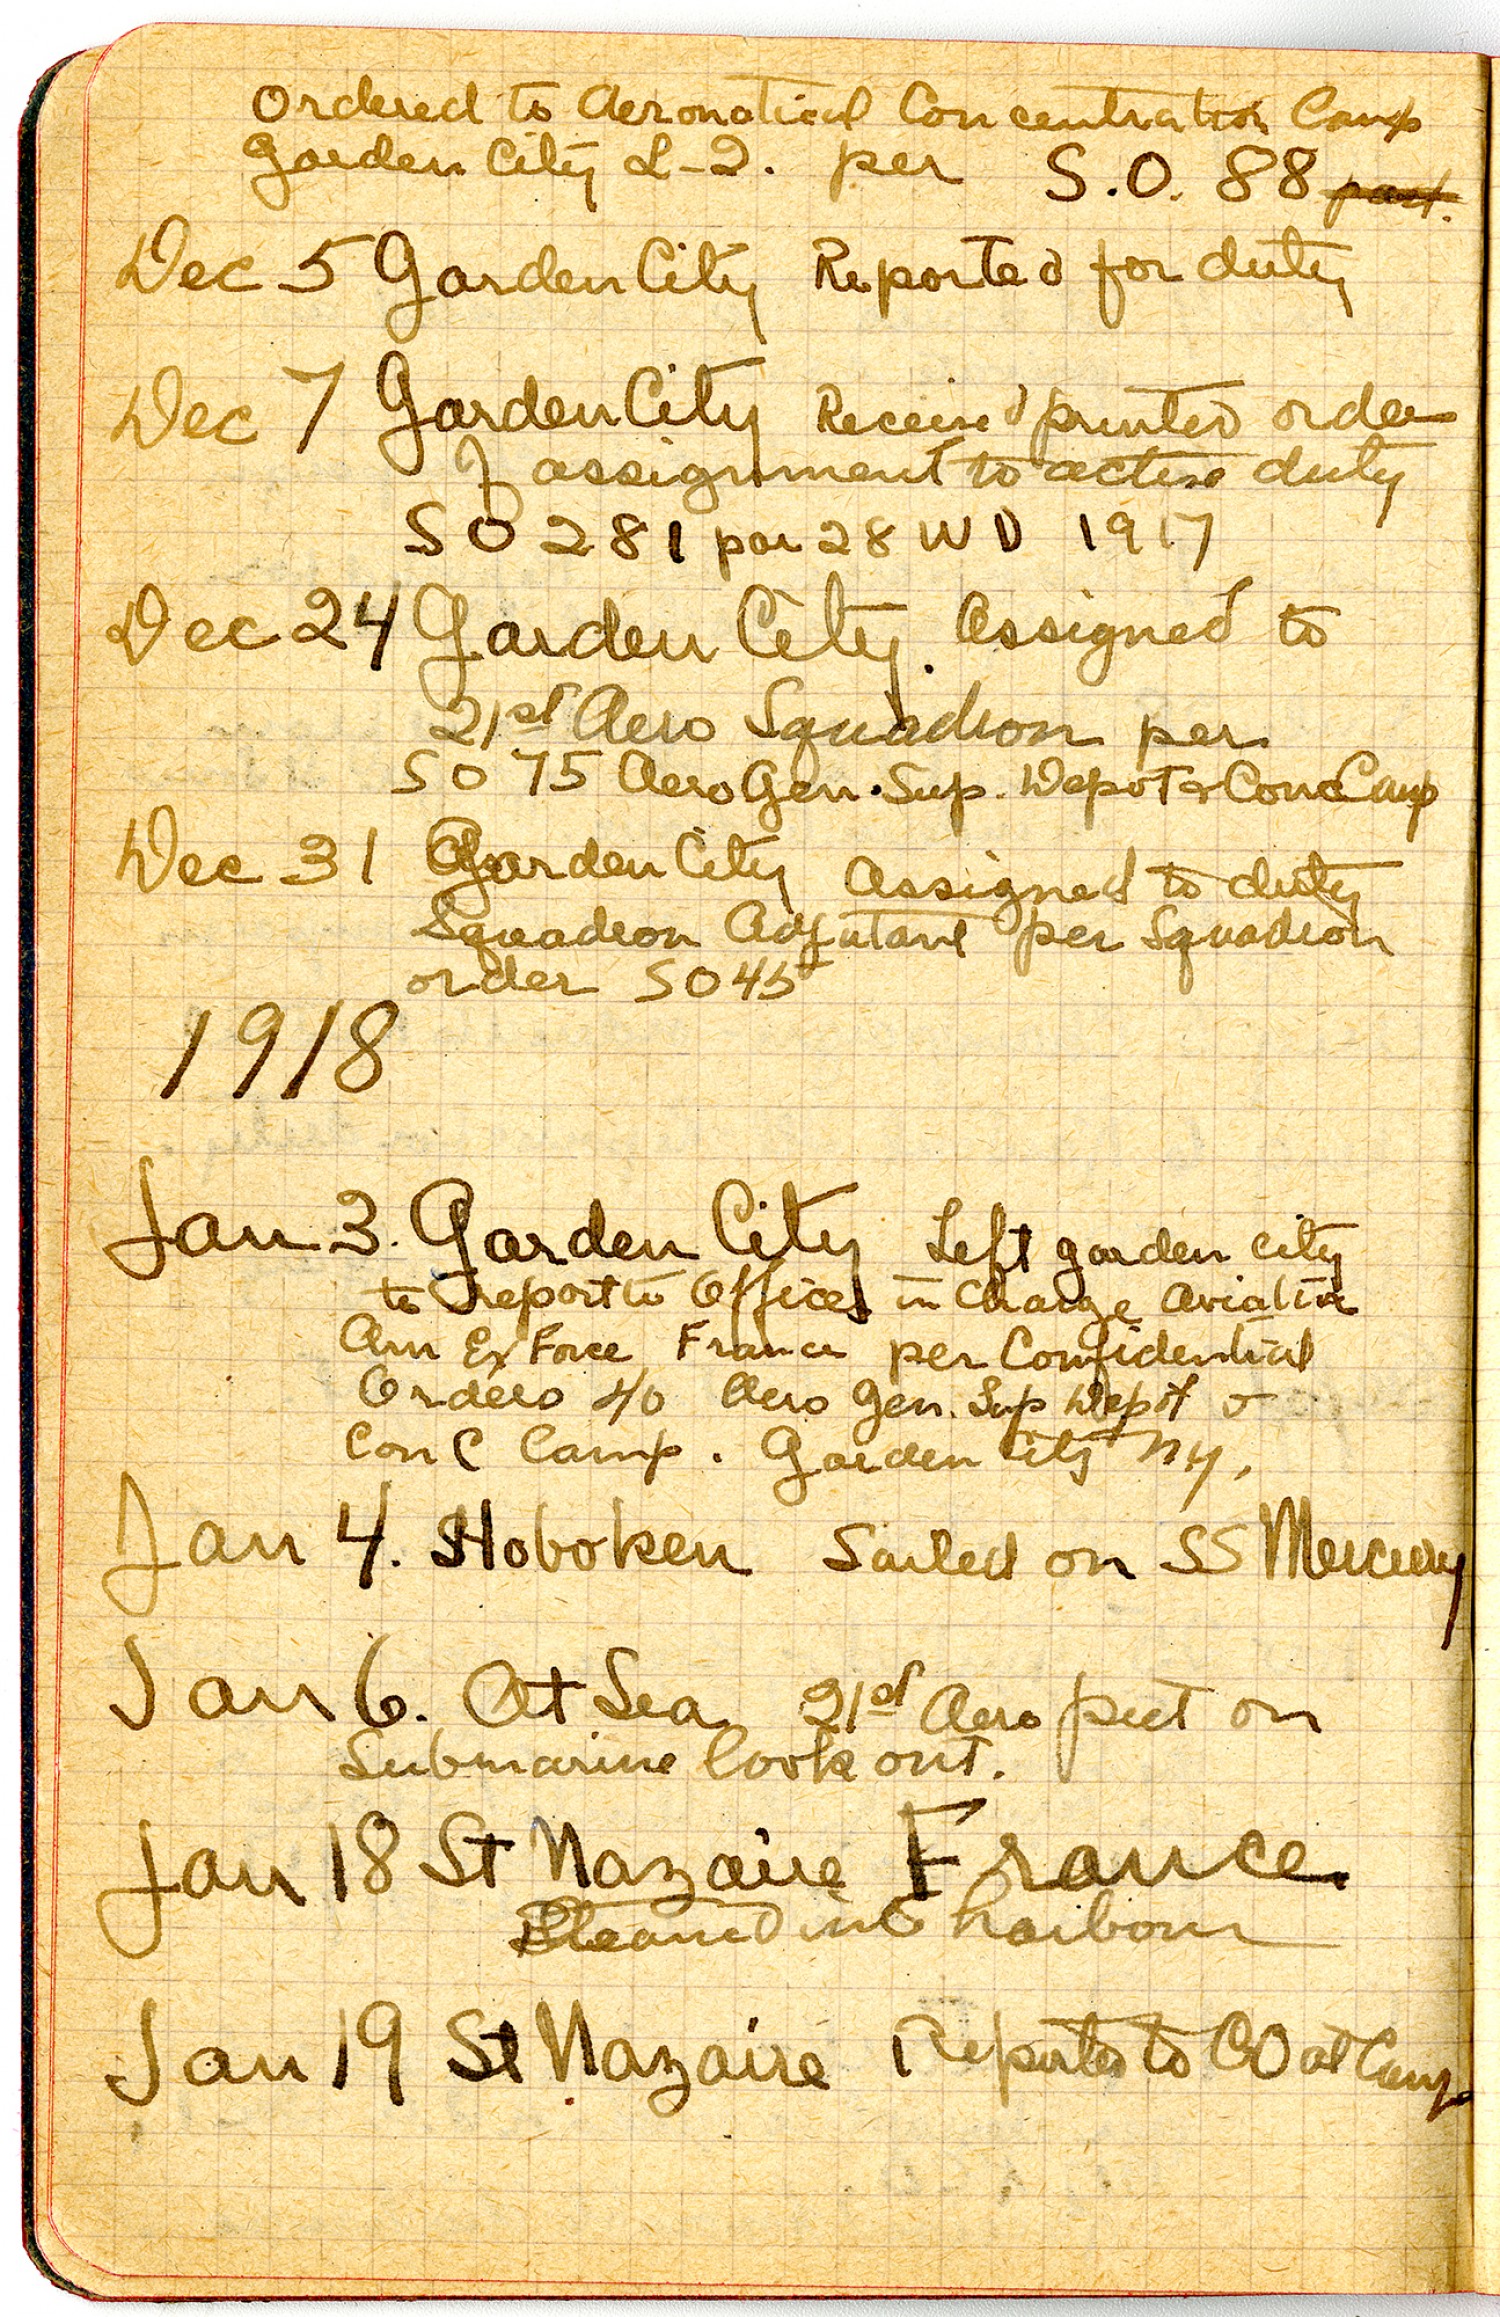 Ordered to Aeronatical Concentration Camp
Garden City L-2. per S.O. 88 part.
Dec 5 Garden City Reported for duty
Dec 7 Garden City Received printed order
of assignment to active duty
SO 281 par 28 WD 1917
Dec 24 Garden City. Assigned to
21st Aero Squadron per
SO 75 Aero Gen. Sup. Depot & Conc Camp
Dec 31 Garden City Assigned to duty
Squadron Adjutant per Squadron
order SO 45
1918
Jan 3. Garden City Left garden city
to report to Officer in Charge Aviation
Am Ex Force France per Confidential
Orders 40 Aero Gen. Sup Depot &
Conc Camp. Garden City NY.
Jan 4. Hoboken Sailed on SS Mercury
Jan 6. At Sea 21st Aero put on
Submarine look out.
Jan 18 St Nazaire France
Steamed into harbour
Jan 19 St Nazaire Reported to CO at Camp